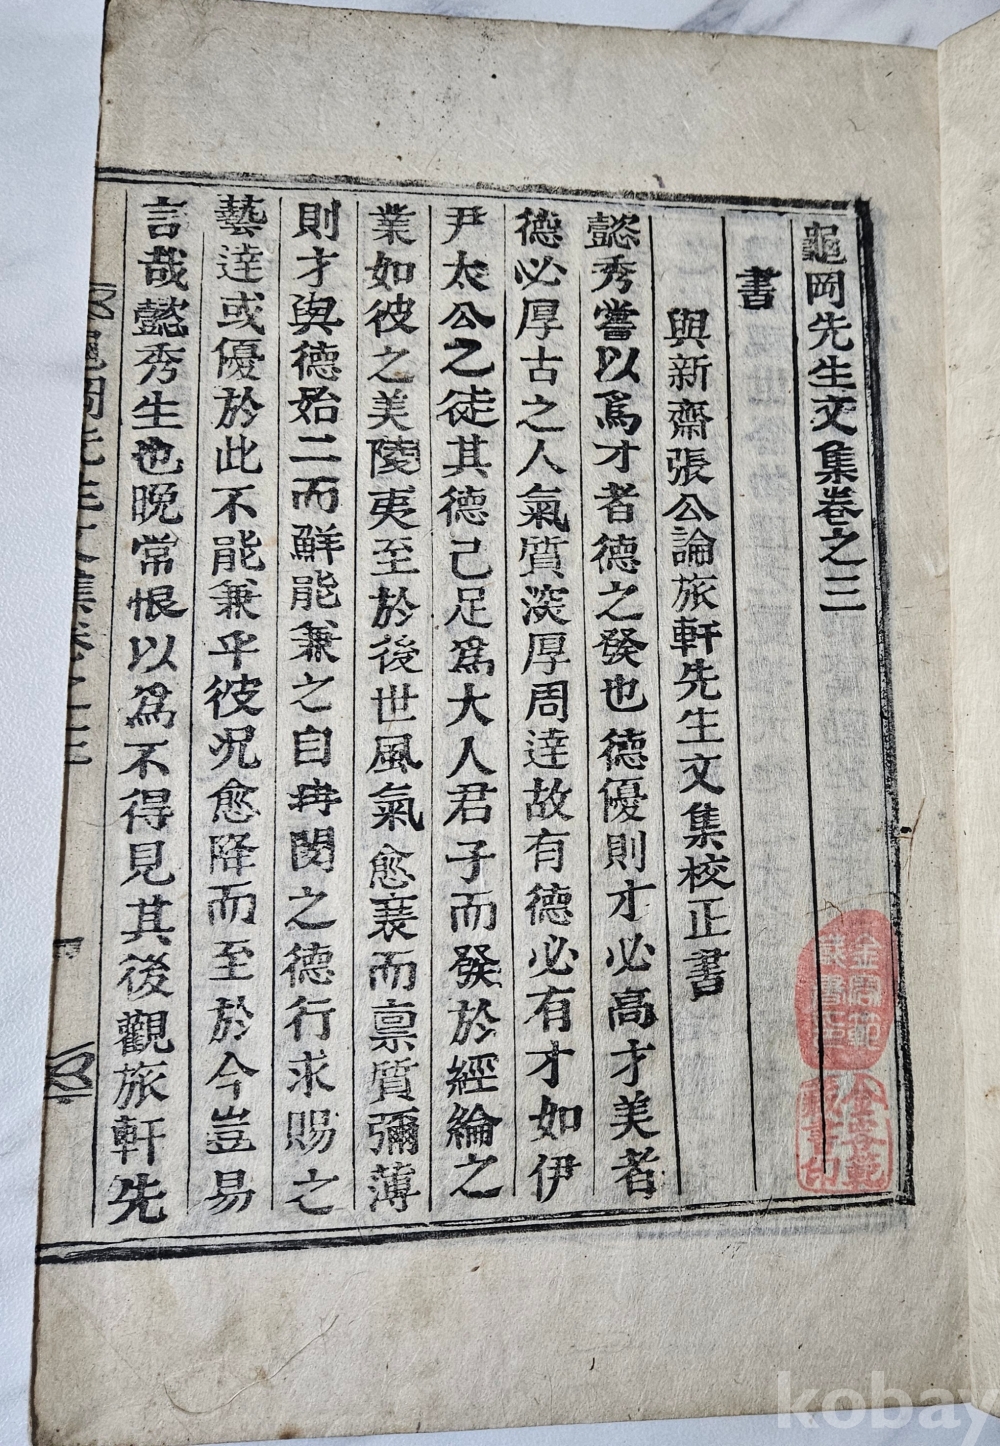 龜岡先生文集卷之三
書
與新齋張公論旅軒先生文集校正書
懿秀嘗以爲才者德之發也德優則才必高才美者
德必厚古之人氣質深厚周達故有德必有才如伊
尹太公之徒其德己足爲大人君子而發於經綸之
業如彼之美陵夷至於後世風氣愈衰而禀質彌薄
則才與德始二而鮮能兼之自冉閔之德行求賜之
藝達或優於此不能兼乎彼况愈降而至於今豈易
言哉懿秀生也晩常恨以爲不得見其後觀旅軒先
龜岡先生文集卷之三
藏書印
kobay